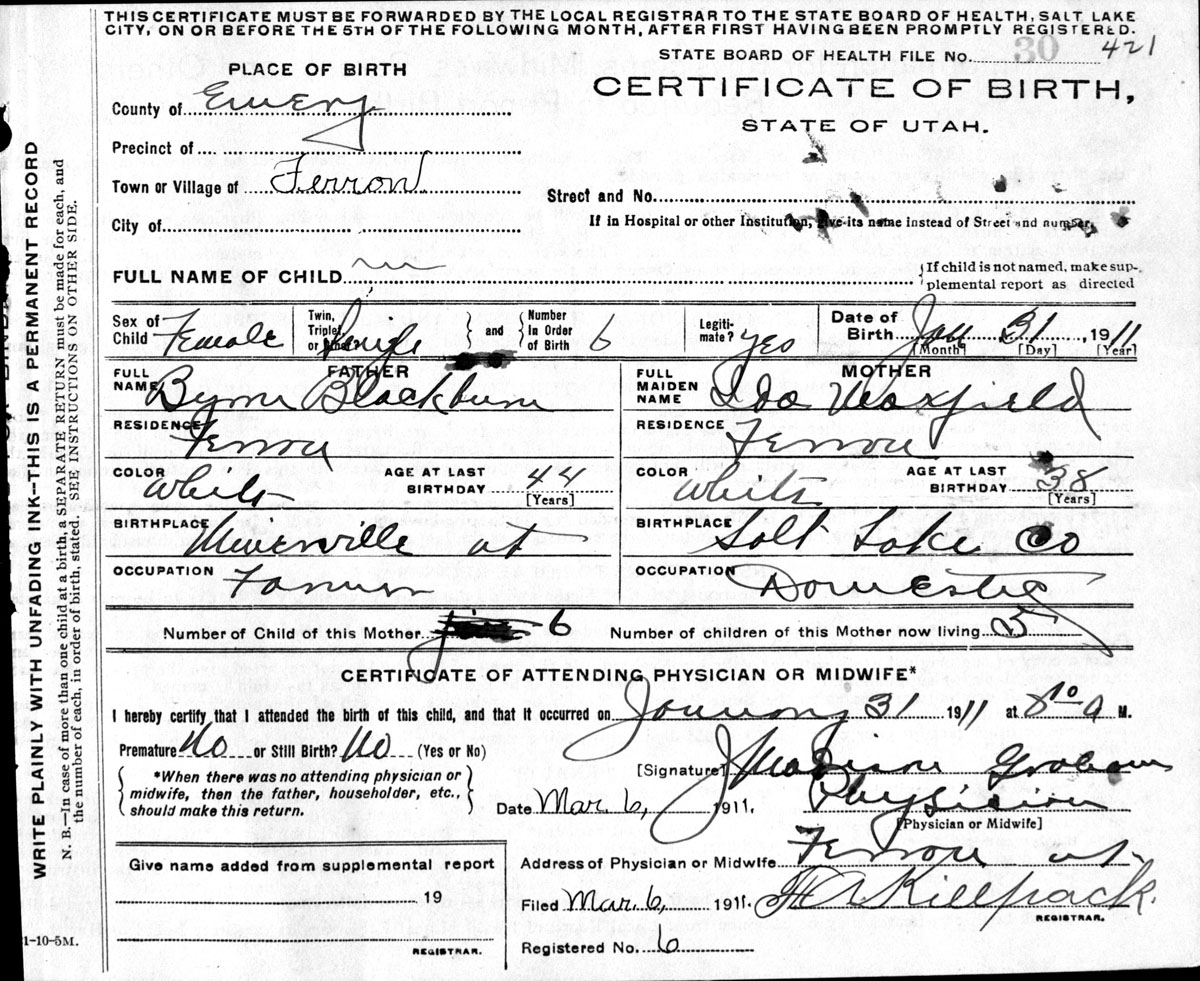 THIS CERTIFICATE MUST BE FORWARDED BY THE LOCAL REGISTRAR TO THE STATE BOARD OF HEALTH, SALT LAKE
CITY, ON OR BEFORE THE 5TH OF THE FOLLOWING MONTH, AFTER FIRST HAVING BEEN PROMPTLY REGISTERED.
STATE BOARD OF HEALTH FILE No. 30 421
PLACE OF BIRTH
CERTIFICATE OF BIRTH,
STATE OF UTAH.
County of Emery
Precinct of
Town or Village of Ferron
Street and No.
City of
If in Hospital or other Institution, give its name instead of Street and number.
FULL NAME OF CHILD
If child is not named, make sup-
plemental report as directed
Sex of Child Female
Twin, Triplet, or other Single
and
Number In Order of Birth 6
Legiti-mate? yes
Date of Birth Jan 31, 1911
[Month] [Day] [Year]
FATHER
FULL NAME Byron Blackburn
RESIDENCE Ferron
COLOR White
AGE AT LAST BIRTHDAY 44
[Years]
BIRTHPLACE Minersville ut
OCCUPATION Farmer
MOTHER
FULL MAIDEN NAME Ida Maxfield
RESIDENCE Ferron
COLOR White
AGE AT LAST BIRTHDAY 38
[Years]
BIRTHPLACE Salt Lake Co
OCCUPATION Domestic
Number of Child of this Mother 6
Number of children of this Mother now living 5
CERTIFICATE OF ATTENDING PHYSICIAN OR MIDWIFE*
I hereby certify that I attended the birth of this child, and that it occurred on January 31 1911 at 8 10 a M.
Premature No or Still Birth? No (Yes or No)
*When there was no attending physician or
midwife, then the father, householder, etc.,
should make this return.
[Signature] J Madison Graham
Date Mar 6, 1911. Physician
[Physician or Midwife]
Give name added from supplemental report
19
REGISTRAR.
Address of Physician or Midwife Ferron ut
Filed Mar 6, 1911. H A Killpack.
REGISTRAR.
Registered No. 6
WRITE PLAINLY WITH UNFADING INK—THIS IS A PERMANENT RECORD
N. B.—In case of more than one child at a birth, a SEPARATE RETURN must be made for each, and
the number of each, in order of birth, stated. SEE INSTRUCTIONS ON OTHER SIDE.
1-10-5M.